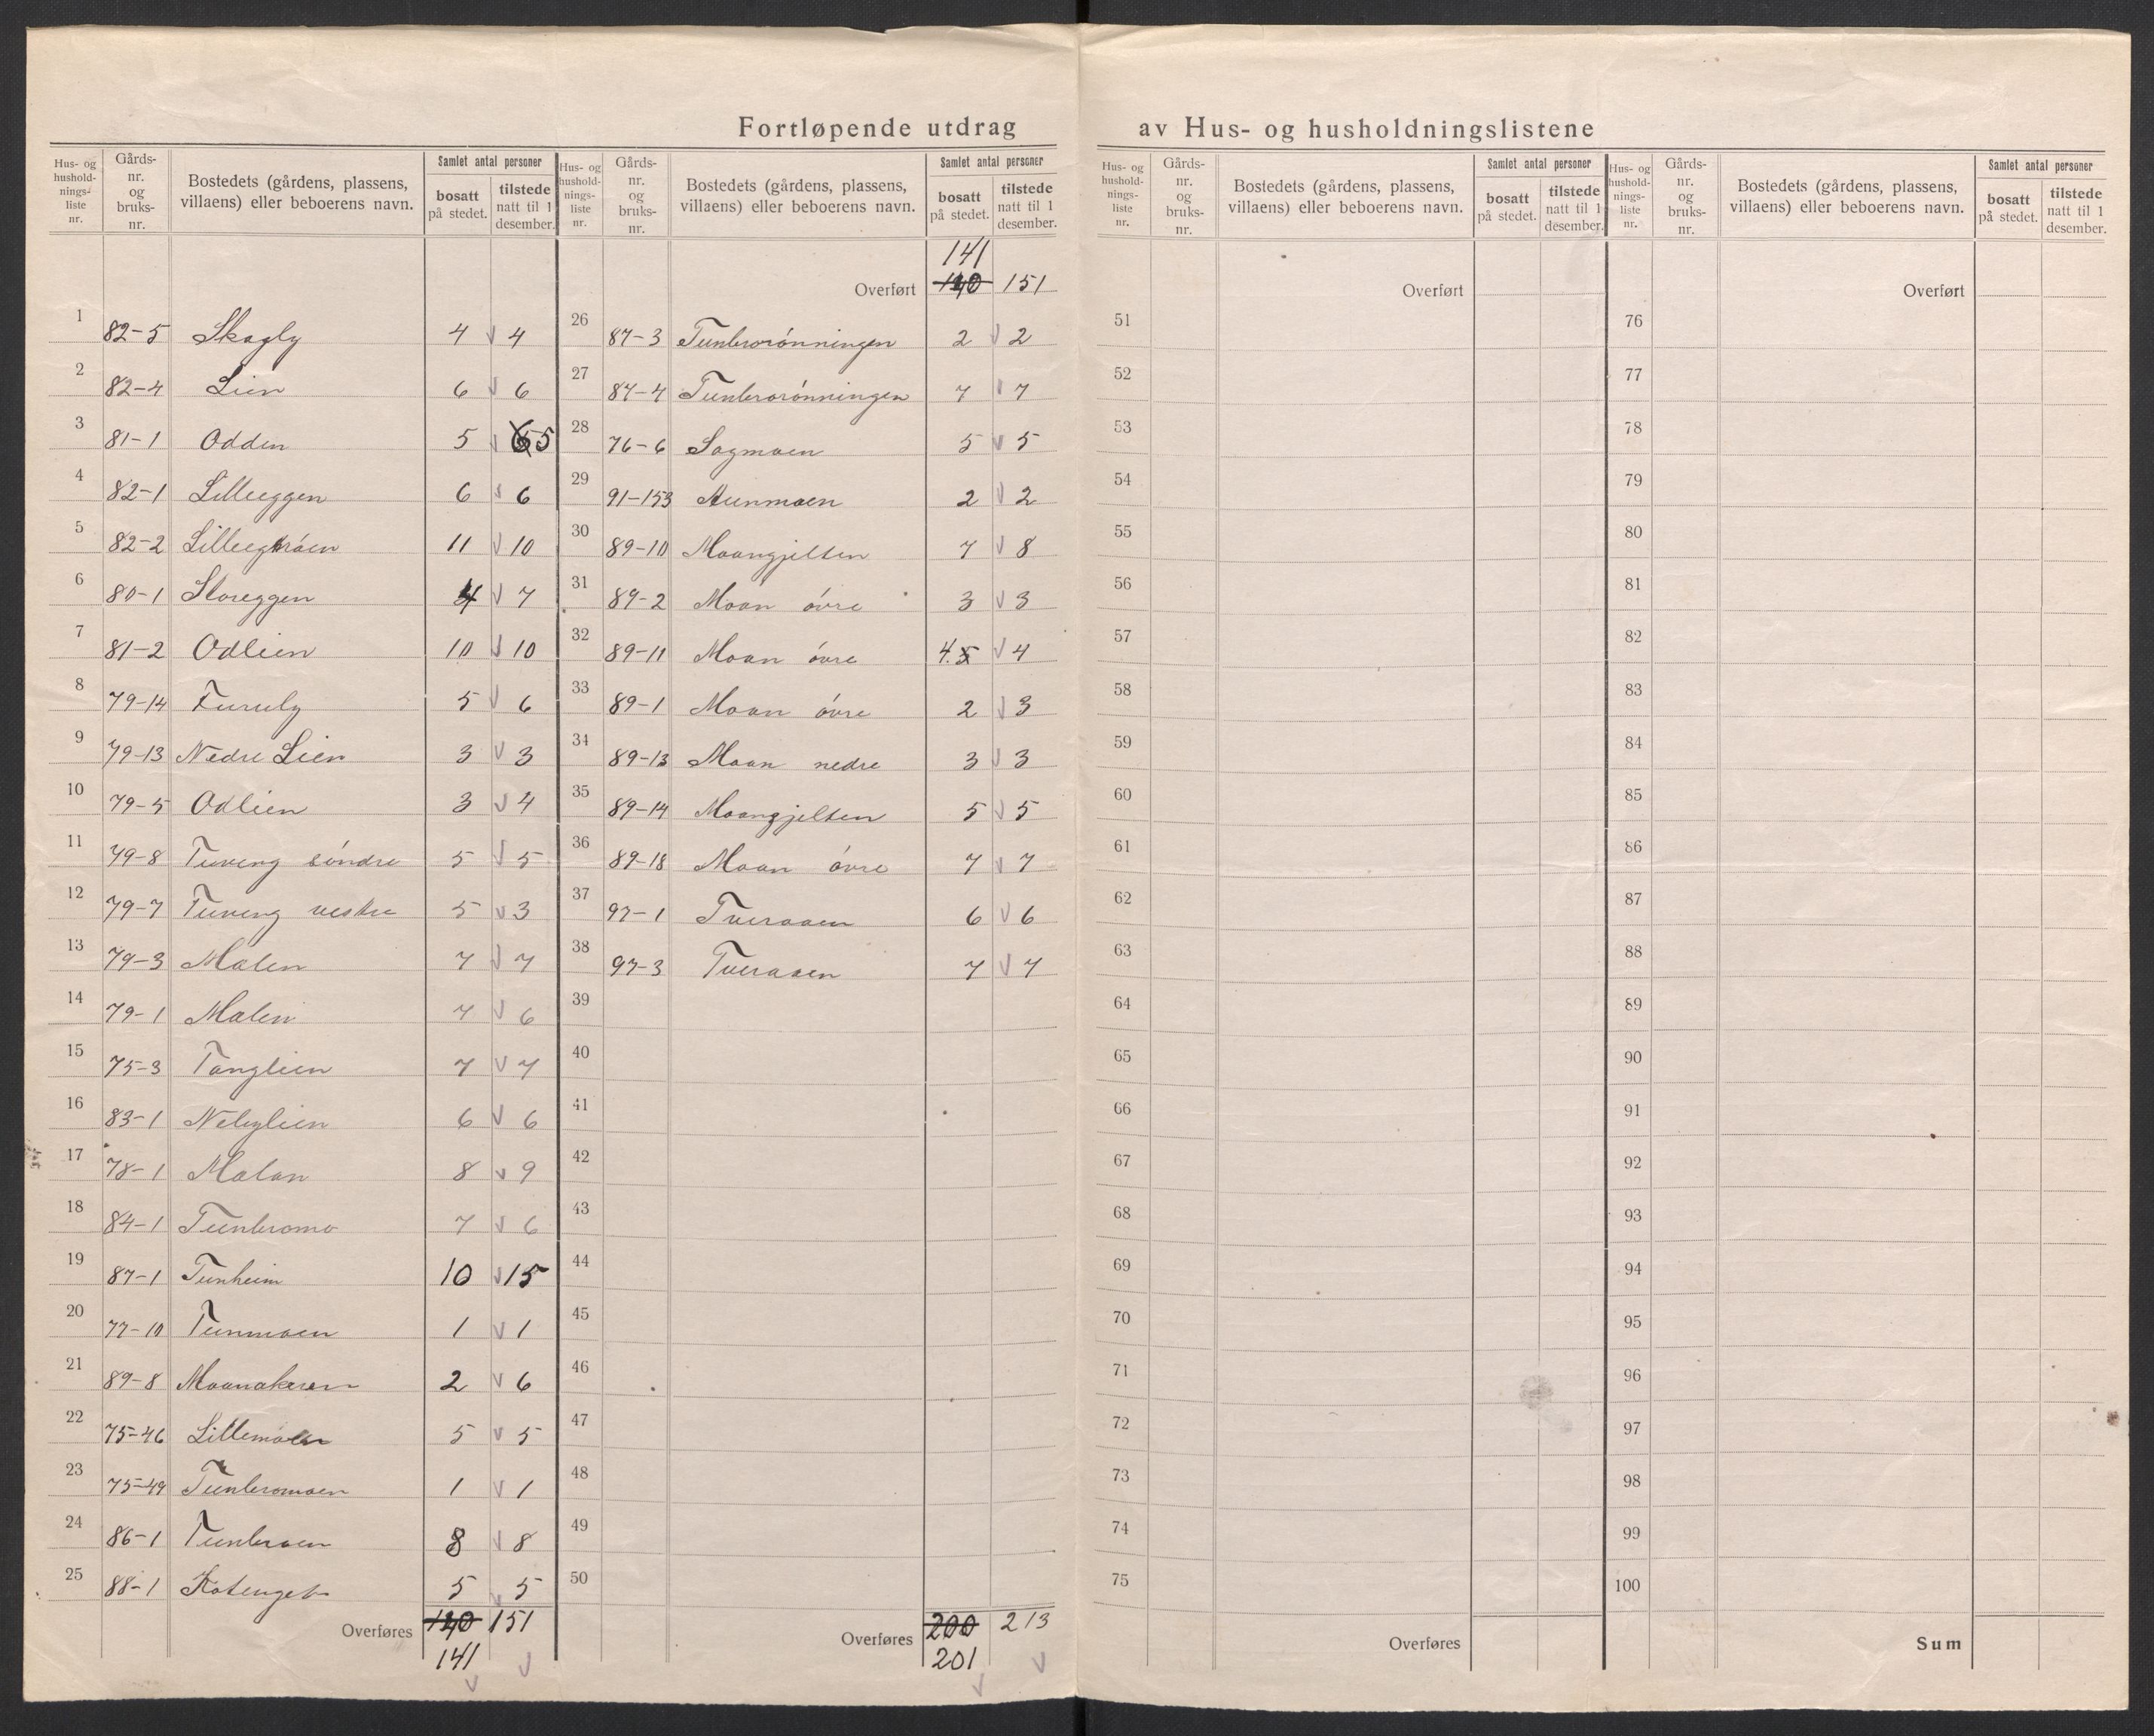 Fortløpende utdrag av Hus- og husholdningslistene
Hus- og husholdnings-liste nr. | Gårds-nr. og bruks-nr. | Bostedets (gårdens, plassens, villaens) eller beboerens navn. | Samlet antal personer | bosatt på stedet. | tilstede natt til 1 desember.
1 82-5 Skogly 4 v 4
2 82-4 Lien 6 v 6
3 81-1 Odden 5 v 6 5
4 82-1 Lilleeggen 6 v 6
5 82-2 11 v 10
6 80-1 Storeggen 4 v 7
7 81-2 Odlien 10 v 10
8 79-14 Furuly 5 v 6
9 79-13 Nedre Lien 3 v 3
10 79-5 Odlien 3 v 4
11 79-8 Tuveng söndre 5 v 5
12 79-7 Tuveng vestre 5 v 3
13 79-3 Malen 7 v 7
14 79-1 Malen 7 v 6
15 75-3 Tanglien 7 v 7
16 83-1 Nebylien 6 v 6
17 78-1 Malan 8 v 9
18 84-1 Tunbromo 7 v 6
19 87-1 Tunheim 10 v 15
20 77-10 Tunmoen 1 v 1
21 89-8 Moanakeren 2 v 6
22 75-46 Lillemoen 5 v 5
23 75-49 Tunbromoen 1 v 1
24 86-1 Tunbroen 8 v 8
25 88-1 5 v 5
Overføres 140 151
141
v v
Hus- og husholdnings-liste nr. | Gårds-nr. og bruks-nr. | Bostedets (gårdens, plassens, villaens) eller beboerens navn. | Samlet antal personer | bosatt på stedet. | tilstede natt til 1 desember.
141
Overført 140 151
26 87-3 Tunbrorönningen 2 v 2
27 87-4 Tunbrorönningen 7 v 7
28 76-6 Sagmoen 5 v 5
29 91-153 Aunmoen 2 v 2
30 89-10 Moangjelten 7 v 8
31 89-2 Moan övre 3 v 3
32 89-11 Moan övre 4. 5 v 4
33 89-1 Moan övre 2 v 3
34 89-13 Moan nedre 3 v 3
35 89-14 Moangjelten 5 v 5
36 89-18 Moan övre 7 v 7
37 97-1 Tveraaen 6 v 6
38 97-3 Tveraaen 7 v 7
39
40
41
42
43
44
45
46
47
48
49
50
Overføres 200 213
201 v
v
Hus- og husholdnings-liste nr. | Gårds-nr. og bruks-nr. | Bostedets (gårdens, plassens, villaens) eller beboerens navn. | Samlet antal personer | bosatt på stedet. | tilstede natt til 1 desember.
Overført
51
52
53
54
55
56
57
58
59
60
61
62
63
64
65
66
67
68
69
70
71
72
73
74
75
Overføres
Hus- og husholdnings-liste nr. | Gårds-nr. og bruks-nr. | Bostedets (gårdens, plassens, villaens) eller beboerens navn. | Samlet antal personer | bosatt på stedet. | tilstede natt til 1 desember.
Overført
76
77
78
79
80
81
82
83
84
85
86
87
88
89
90
91
92
93
94
95
96
97
98
99
100
Sum